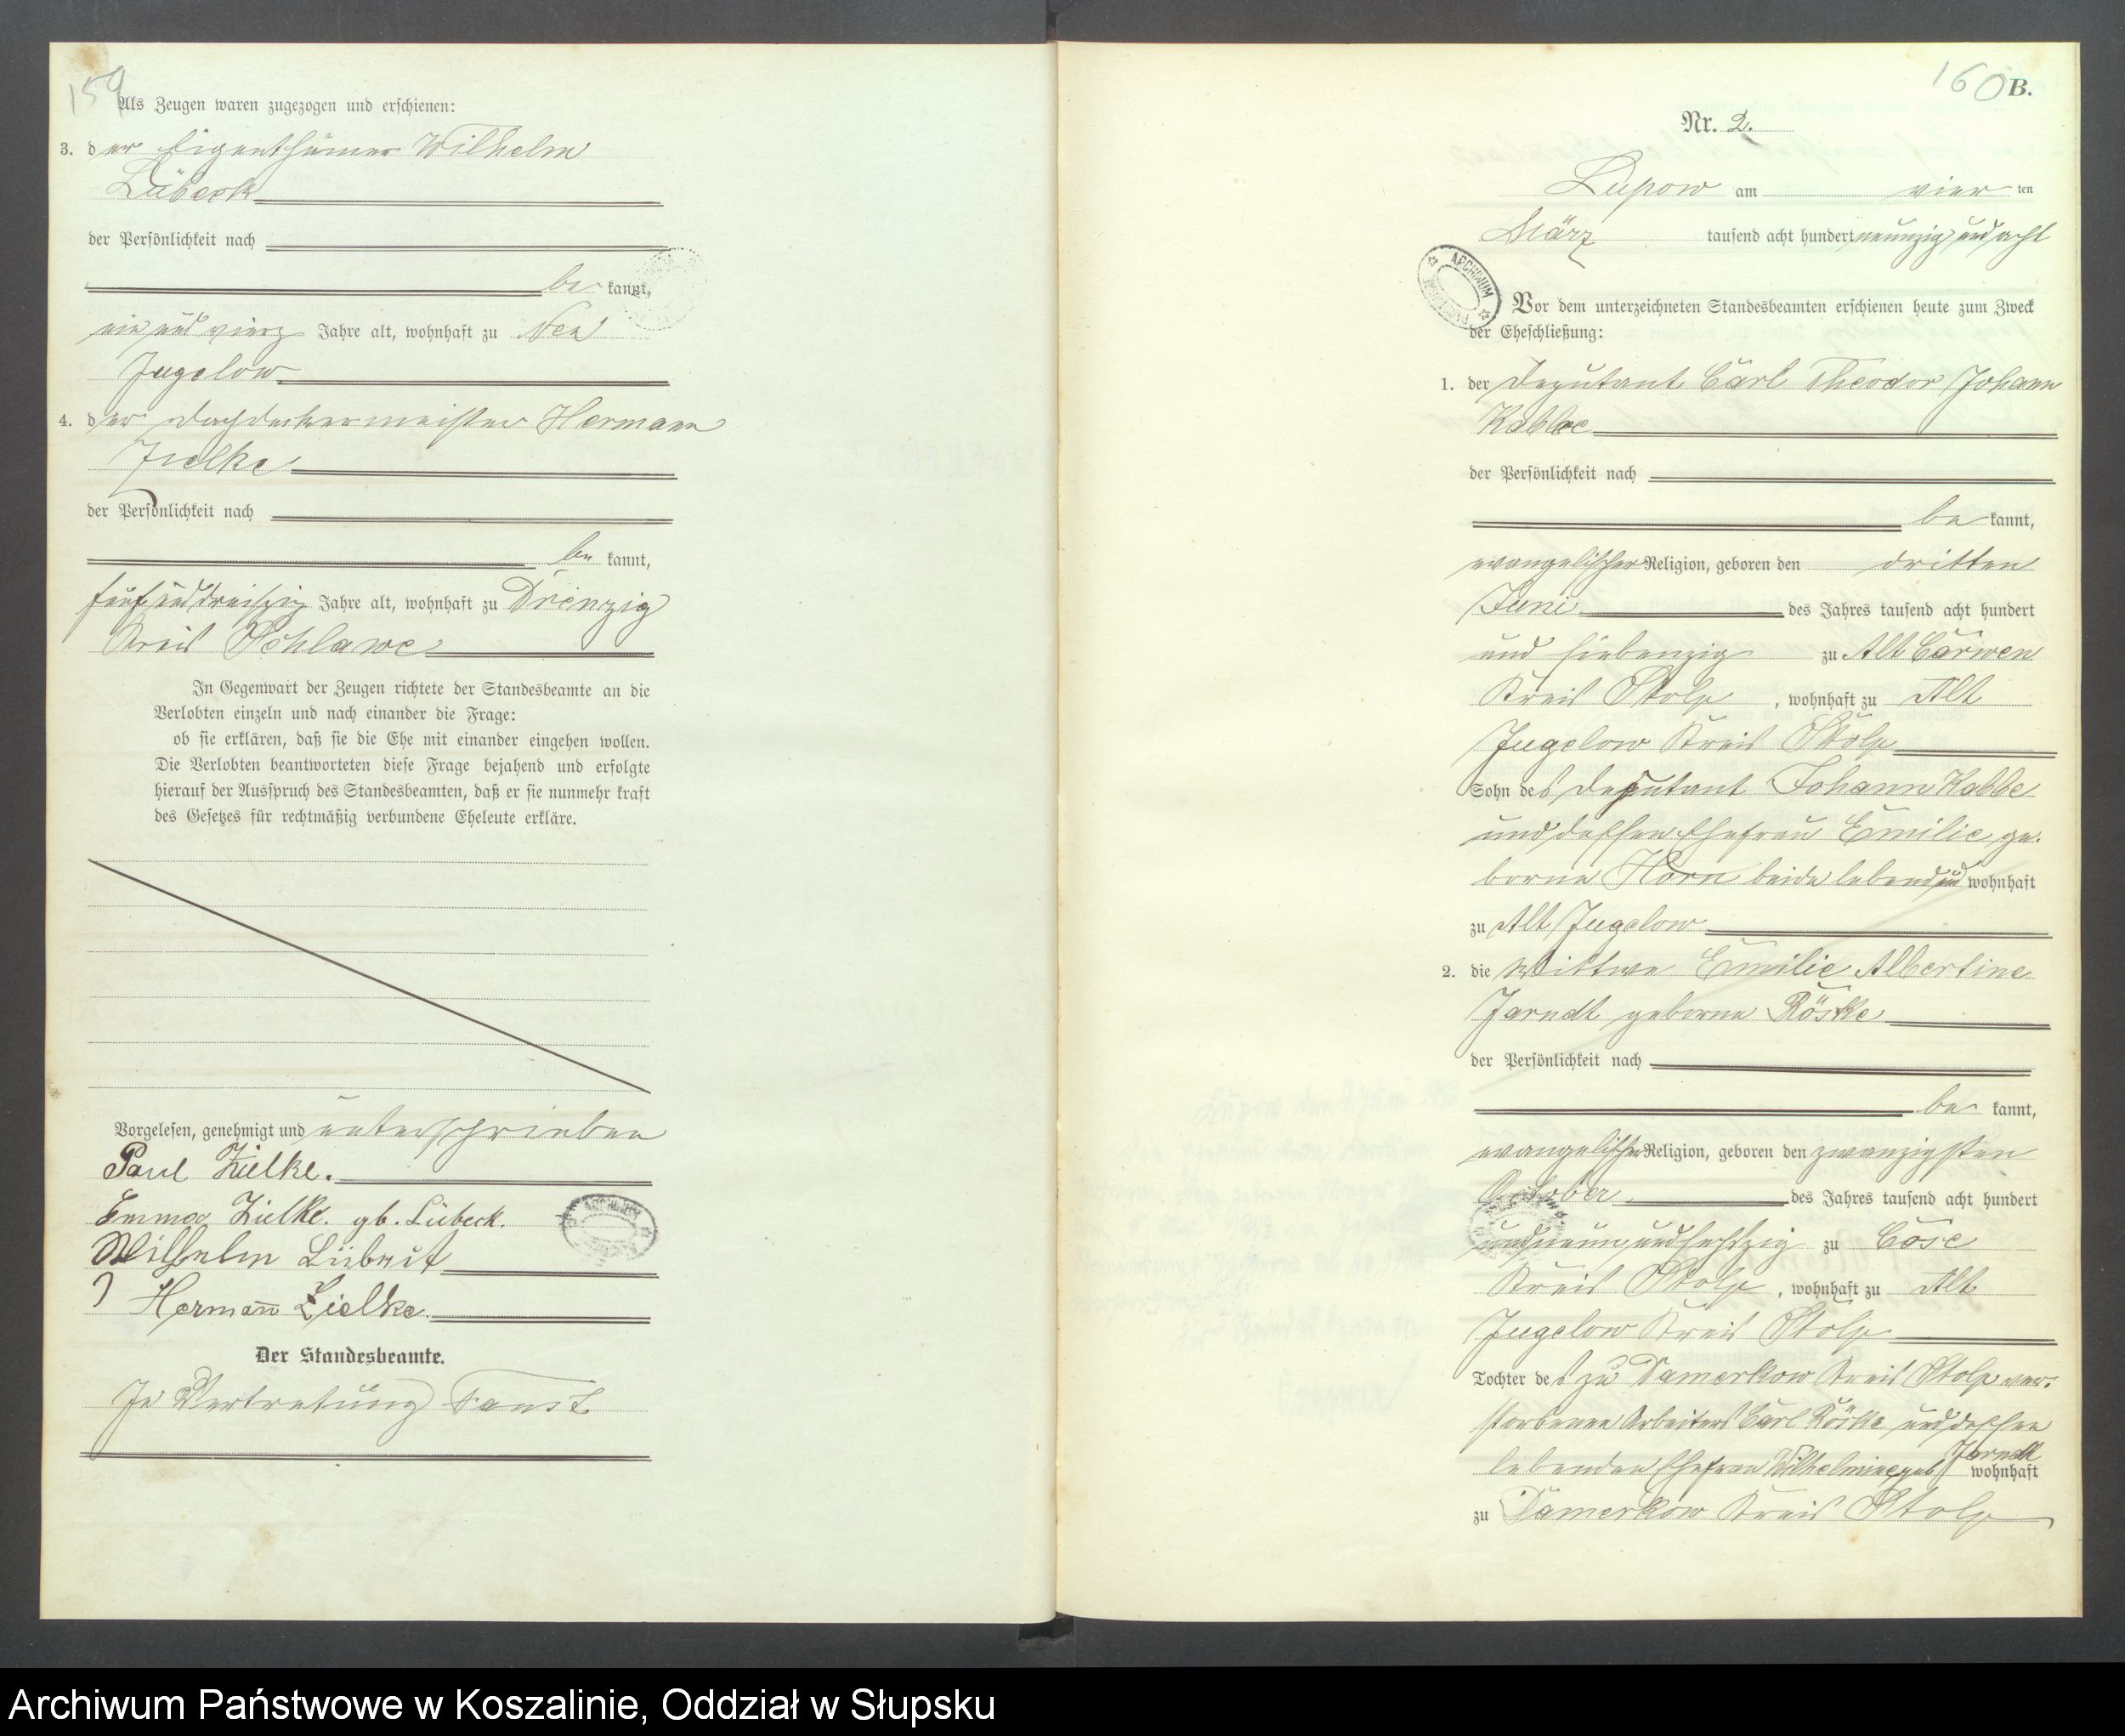 159
Als Zeugen waren zugezogen und erschienen:
3. der Eigenthümer Wilhelm
Lübeck
der Persönlichkeit nach
be kannt,
ein und vierz Jahre alt, wohnhaft zu Neu
Jugelow
4. der Dachdeckermeister Hermann
Zielke
der Persönlichkeit nach
be kannt,
fünf und dreißzig Jahre alt, wohnhaft zu
Kreis Schlawe
In Gegenwart der Zeugen richtete der Standesbeamte an die
Verlobten einzeln und nach einander die Frage:
ob sie erklären, daß sie die Ehe mit einander eingehen wollen.
Die Verlobten beantworteten diese Frage bejahend und erfolgte
hierauf der Ausspruch des Standesbeamten, daß er sie nunmehr kraft
des Gesetzes für rechtmäßig verbundene Eheleute erkläre.
Vorgelesen, genehmigt und unterschrieben
Paul Zielke.
Emma Zielke. gb. Lübeck.
Wilhelm Lübeck
Hermann Zielke
Der Standesbeamte.
In Vertretung Faust
160 B.
Nr. 2.
Lupow am vier ten
März tausend acht hundert neunzig und acht
ARCHIWUM
Vor dem unterzeichneten Standesbeamten erschienen heute zum Zweck
der Eheschließung:
1. der Deputant Carl Theodor Johann
Kabbe
der Persönlichkeit nach
be kannt,
evangelischer Religion, geboren den dritten
Juni des Jahres tausend acht hundert
und siebenzig zu Alt Carwen
Kreis Stolp, wohnhaft zu Alt
Jugelow Kreis Stolp
Sohn des Deputant Johann Kabbe
und dessen Ehefrau Emilie ge-
borne Horn beide lebend und wohnhaft
zu Alt Jugelow
2. die Wittwe Emilie Albertine
Jarndt geborne Röske
der Persönlichkeit nach
be kannt,
evangelischer Religion, geboren den zwanzigsten
October des Jahres tausend acht hundert
und neun und sechszig zu Cose
Kreis Stolp, wohnhaft zu Alt
Jugelow Kreis Stolp
Tochter des zu Damerkow Kreis Stolp ver-
storbenen Arbeiters Carl Röske und dessen
lebenden Ehefrau Wilhelmine geb Jarndt wohnhaft
zu Damerkow Kreis Stolp
Archiwum Państwowe w Koszalinie, Oddział w Słupsku